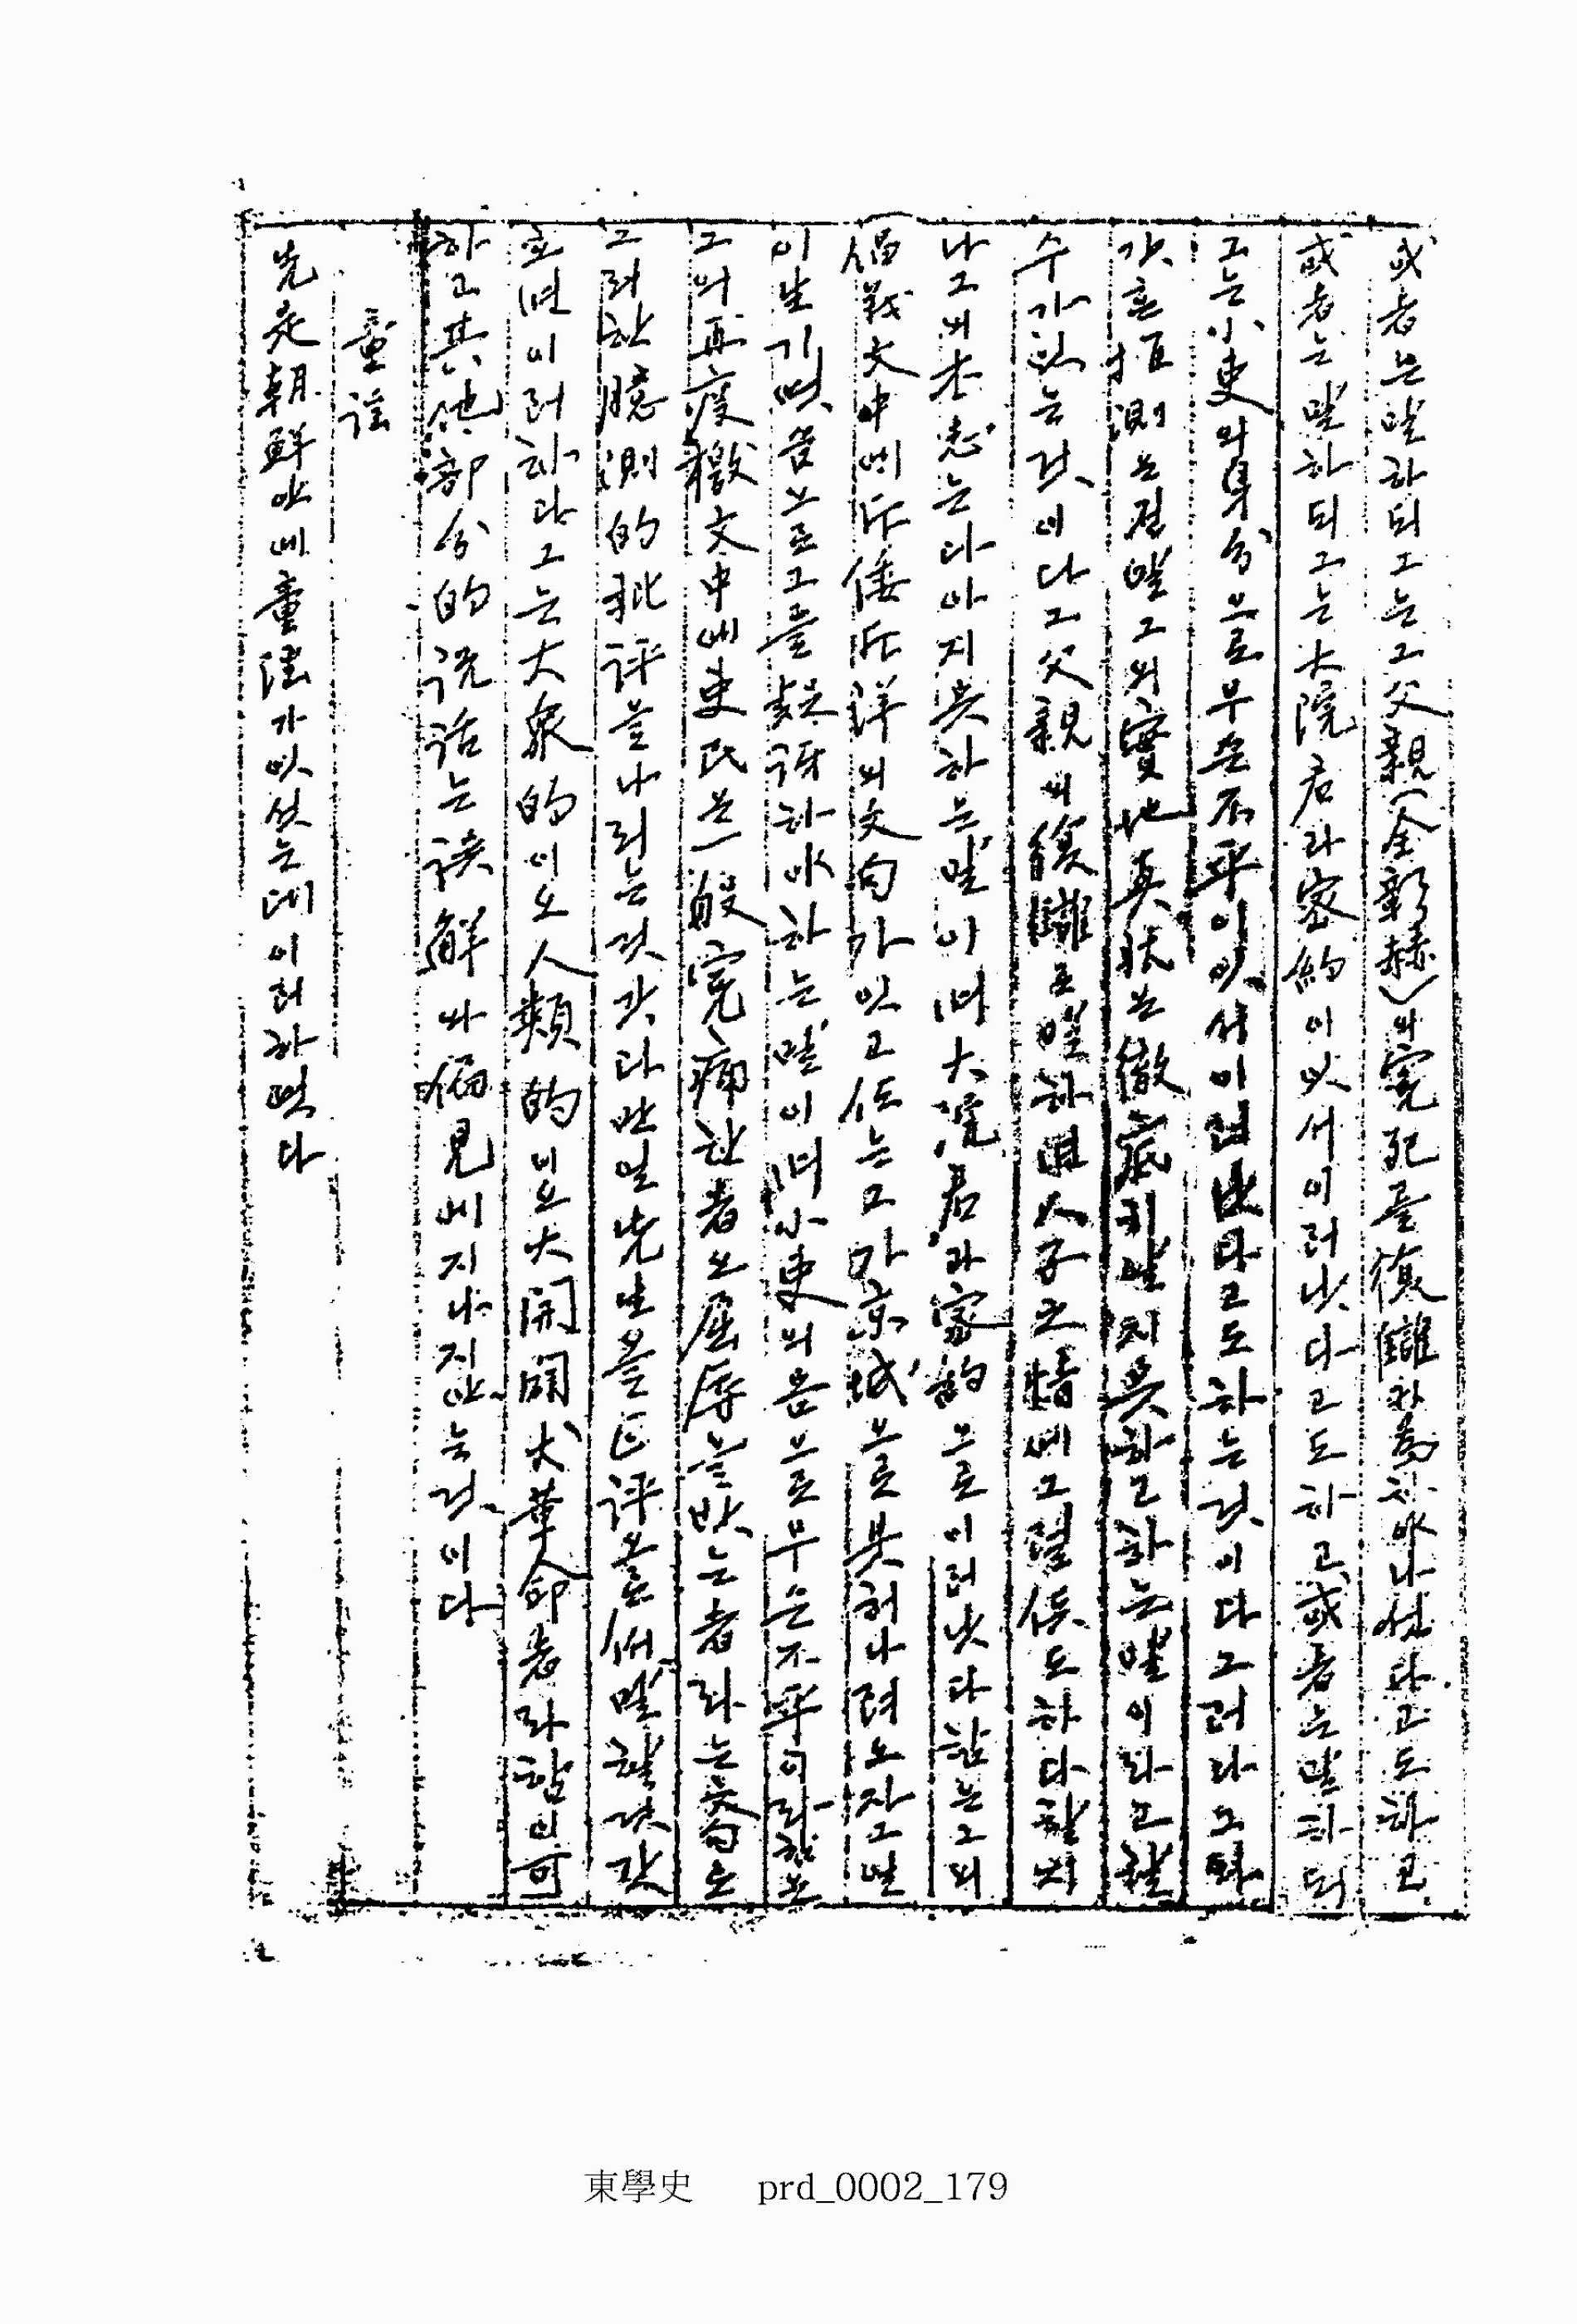 或者는말하되그는그父親(全彰赫)의寃死를復讐하爲하야나섯다고도하고
或者는말하되그는大院君과密約이잇서이러낫다고도하고或者는말하되
그는小史의身分으로무슨不平이잇서이러낫다고도하는것이다그러나그러
한臆測은정말그의實地眞狀은徹底키말치못하고하는말이라고할
수가잇는것이다그父親의復讐로말하면人子之情에그럴뜻도하다할지
나그의本志는다아지못하는말이며大院君과密約으로이러낫다함은그의
倡義文中에斥倭斥洋의文句가잇고또는그가京城으로붓허나려오자그일
이生기엿슴으로그를疑訝하야하는말이며小吏의몸으로무슨不平이라함은
그의再度檄文中에吏民은一般寃痛한者오屈辱을밧는者라는文句로
그러한臆測的批評을나리는것갓다만일先生을正評으로써말할것갓
흐면이러하다그는大衆的이오人類的이오大開闢大革命者라함이可
하고其他部分的說話는誤解나偏見에지나지안는것이다
童謠
先是朝鮮안에童謠가잇섯는데이러하엿다